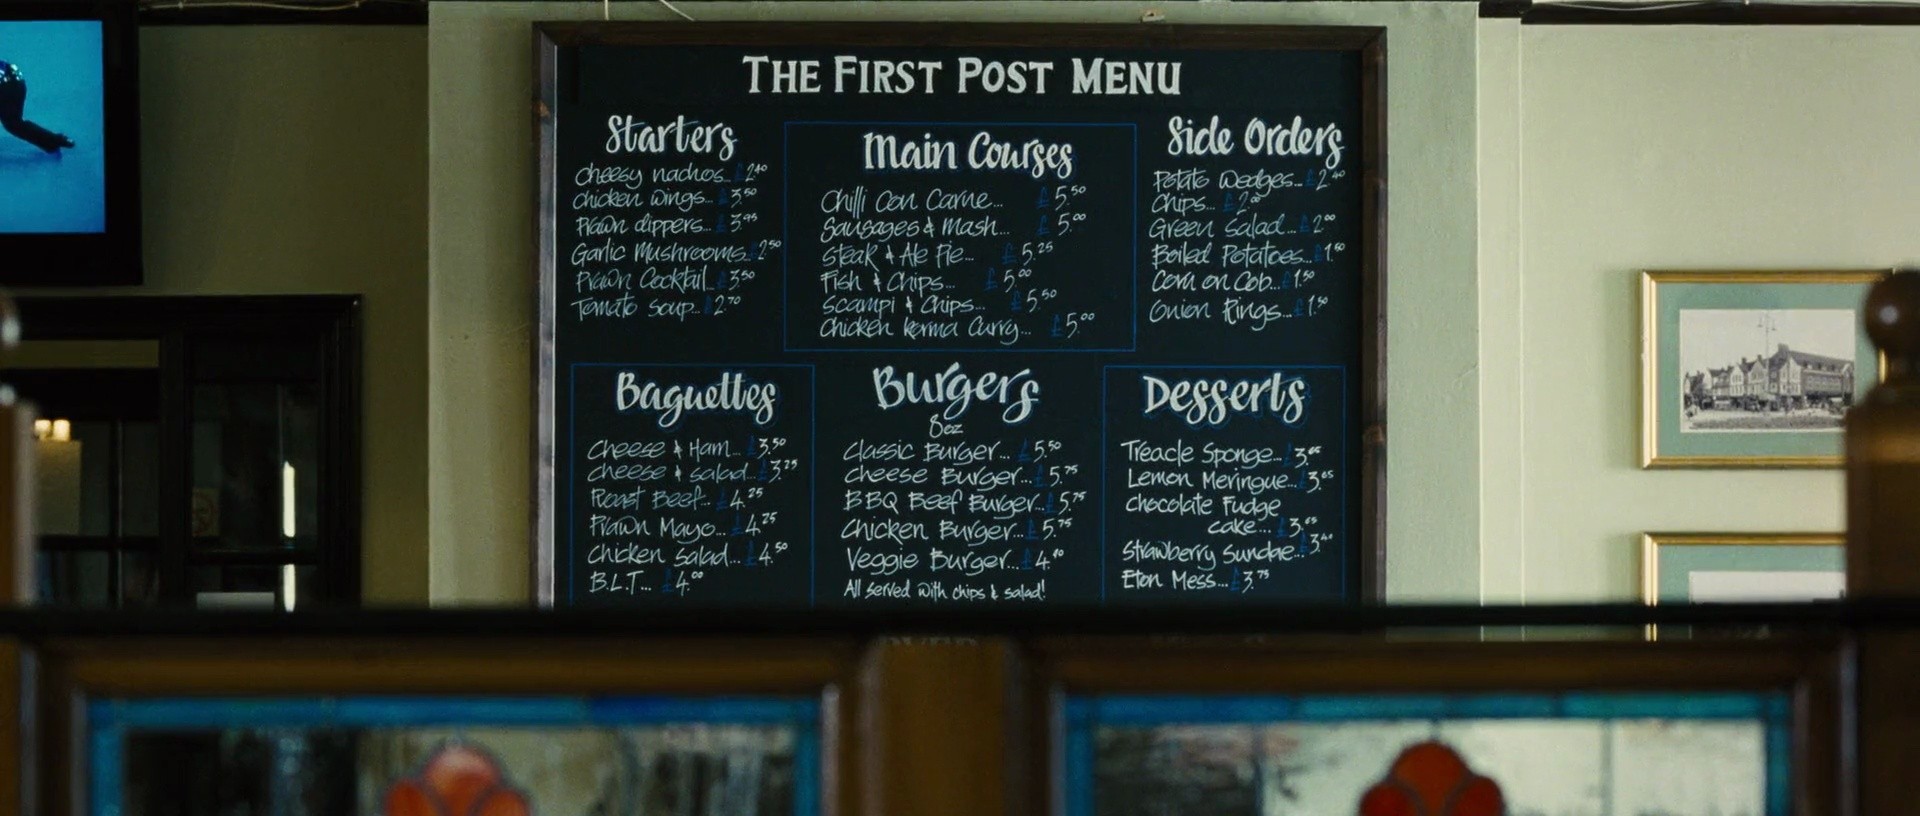 THE FIRST POST MENU
Starters
Cheesy nachos... £2.40
Chicken wings... £3.50
Prawn dippers... £3.95
Garlic Mushrooms... £2.50
Prawn Cocktail... £3.50
Tomato Soup... £2.70
Main Courses
Chilli Con Carne... £5.50
Sausages & Mash... £5.00
Steak & Ale Pie... £5.25
Fish & Chips... £5.00
Scampi & Chips... £5.50
Chicken korma Curry... £5.00
Side Orders
Potato Wedges... £2.40
Chips... £2.00
Green Salad... £2.00
Boiled Potatoes... £1.50
Corn on Cob... £1.50
Onion Rings... £1.50
Baguettes
Cheese & Ham... £3.50
Cheese & salad... £3.25
Roast Beef... £4.25
Prawn Mayo... £4.25
Chicken Salad... £4.50
B.L.T... £4.00
Burgers
8oz
Classic Burger... £5.50
Cheese Burger... £5.75
BBQ Beef Burger... £5.75
Chicken Burger... £5.75
Veggie Burger...
All served with chips & salad!
Desserts
Treacle Sponge...
Lemon Meringue... £3.65
Chocolate Fudge
cake... £3.65
Strawberry Sundae...
Eton Mess... £3.75